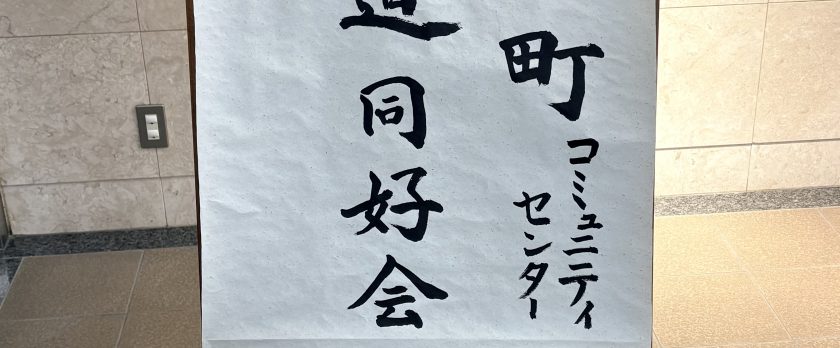 町コミュニティセンター
同好会